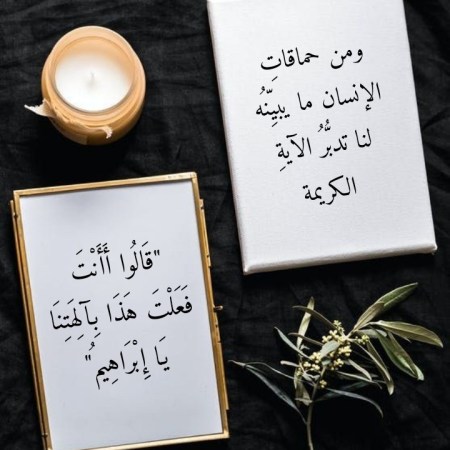 ومن حماقاتِ
الإنسان ما يبيِّنُه
لنا تدبُّرُ الآيةِ
الكريمة
"قَالُوا أَأَنْتَ
فَعَلْتَ هَذَا بِآلِهَتِنَا
يَا إِبْرَاهِيمُ"